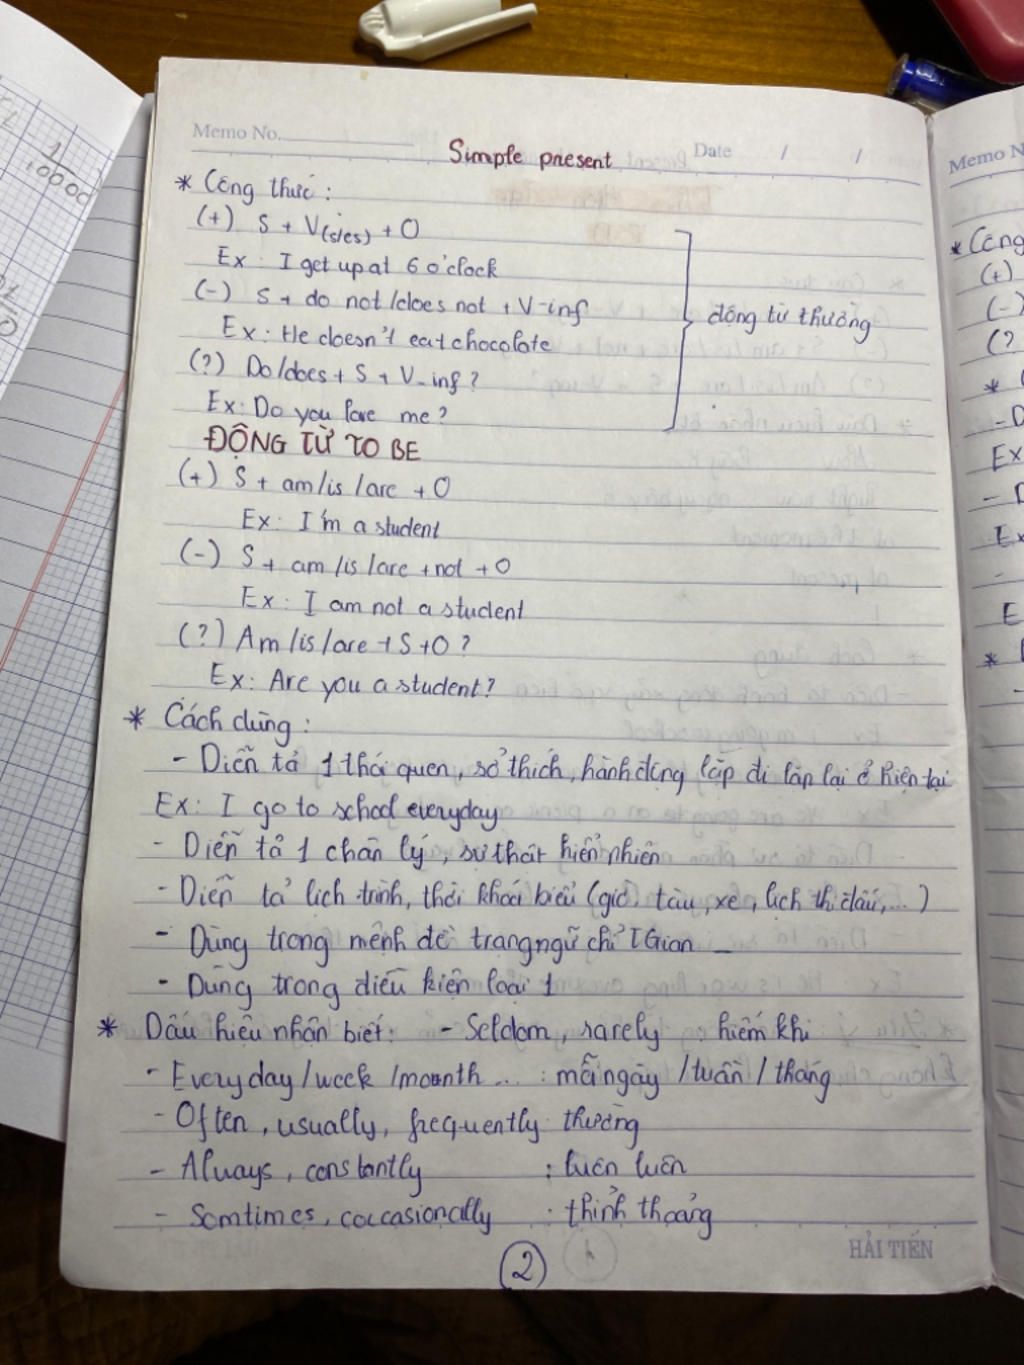 Memo No.
Simple present
Date / /
* Công thức :
(+) S + V(s/es) + O
Ex : I get up at 6 o'clock
(-) S + do not /does not + V-inf
động từ thường
Ex : He doesn't eat chocolate
(?) Do/does + S + V-inf ?
Ex: Do you love me ?
ĐỘNG TỪ TO BE
(+) S + am/is /are + O
Ex : I'm a student
(-) S + am /is /are +not +O
Ex : I am not a student
(?) Am /is /are +S +O ?
Ex: Are you a student?
* Cách dùng :
- Diễn tả 1 thói quen, sở thích, hành động lặp đi lặp lại ở hiện tại
Ex: I go to school everyday
- Diễn tả 1 chân lý, sự thật hiển nhiên
- Diễn tả lịch trình, thời khoá biểu (giờ tàu, xe, lịch thi đấu,...)
- Dùng trong mệnh đề trạng ngữ chỉ TGian
- Dùng trong điều kiện loại 1
* Dấu hiệu nhận biết: - Seldom, rarely : hiếm khi
- Everyday/week /mounth ... : mỗi ngày /tuần / tháng
- Often, usually, frequently : thường
- Always, constantly : luôn luôn
- Somtimes, coccasionally : thỉnh thoảng
2
HẢI TIẾN
Memo N
* Công
(+)
(-)
(?
*
- D
Ex
- D
Ex
-
E
*
-
10000